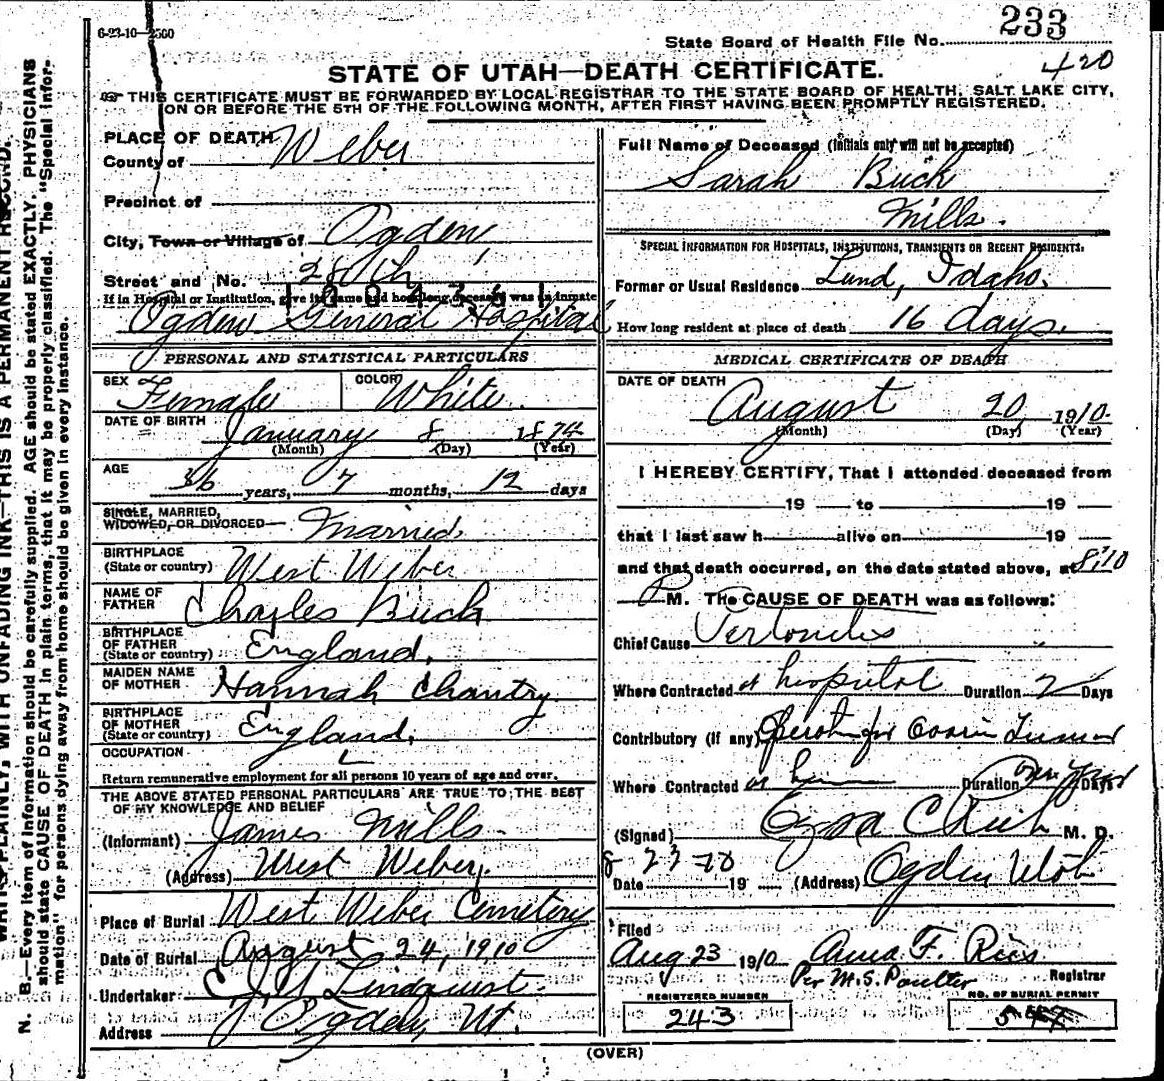 6-23-10—2500
233
State Board of Health File No.
420
STATE OF UTAH—DEATH CERTIFICATE.
THIS CERTIFICATE MUST BE FORWARDED BY LOCAL REGISTRAR TO THE STATE BOARD OF HEALTH, SALT LAKE CITY,
ON OR BEFORE THE 5TH OF THE FOLLOWING MONTH, AFTER FIRST HAVING BEEN PROMPTLY REGISTERED.
PLACE OF DEATH
County of Weber
Precinct of
City, Town or Village of Ogden,
Street and No. 28th
If in Hospital or Institution, give its name and how long deceased was inmate
Ogden General Hospital
PERSONAL AND STATISTICAL PARTICULARS
SEX Female COLOR White.
DATE OF BIRTH January 8 1874
(Month) (Day) (Year)
AGE
36 years, 7 months, 12 days
SINGLE, MARRIED,
WIDOWED, OR DIVORCED— Married
BIRTHPLACE
(State or country) West Weber
NAME OF
FATHER Charles Buck
BIRTHPLACE
OF FATHER
(State or country) England,
MAIDEN NAME
OF MOTHER Hannah Chantry
BIRTHPLACE
OF MOTHER
(State or country) England,
OCCUPATION
Return remunerative employment for all persons 10 years of age and over.
THE ABOVE STATED PERSONAL PARTICULARS ARE TRUE TO THE BEST
OF MY KNOWLEDGE AND BELIEF
(Informant) James Mills.
(Address) West Weber.
Place of Burial West Weber Cemetery
Date of Burial August 24, 1910
Undertaker Lindquist.
Address Ogden, Ut.
Full Name of Deceased (Initials only will not be accepted)
Sarah Buck
Mills.
SPECIAL INFORMATION FOR HOSPITALS, INSTITUTIONS, TRANSIENTS OR RECENT RESIDENTS.
Former or Usual Residence Lund, Idaho.
How long resident at place of death 16 days.
MEDICAL CERTIFICATE OF DEATH
DATE OF DEATH
August 20 1910.
(Month) (Day) (Year)
I HEREBY CERTIFY, That I attended deceased from
19 — to 19
that I last saw h alive on 19
and that death occurred, on the date stated above, at 8:10
P M. The CAUSE OF DEATH was as follows:
Chief Cause Pertonitis
Where Contracted at hospital Duration 2 Days
Contributory (if any) Operation for Tumor
Where Contracted at Duration Days
(Signed) Ezra C Rich M. D.
8 23 10
Date 19 (Address) Ogden Utah
Filed
Aug 23 1910 Anna F. Ries
Per M.S. Poulter Registrar
REGISTERED NUMBER
243
NO. OF BURIAL PERMIT
(OVER)
WRITE PLAINLY, WITH UNFADING INK—THIS IS A PERMANENT RECORD.
N. B.—Every item of information should be carefully supplied. AGE should be stated EXACTLY. PHYSICIANS
should state CAUSE OF DEATH in plain terms, that it may be properly classified. The "Special Infor-
mation" for persons dying away from home should be given in every instance.